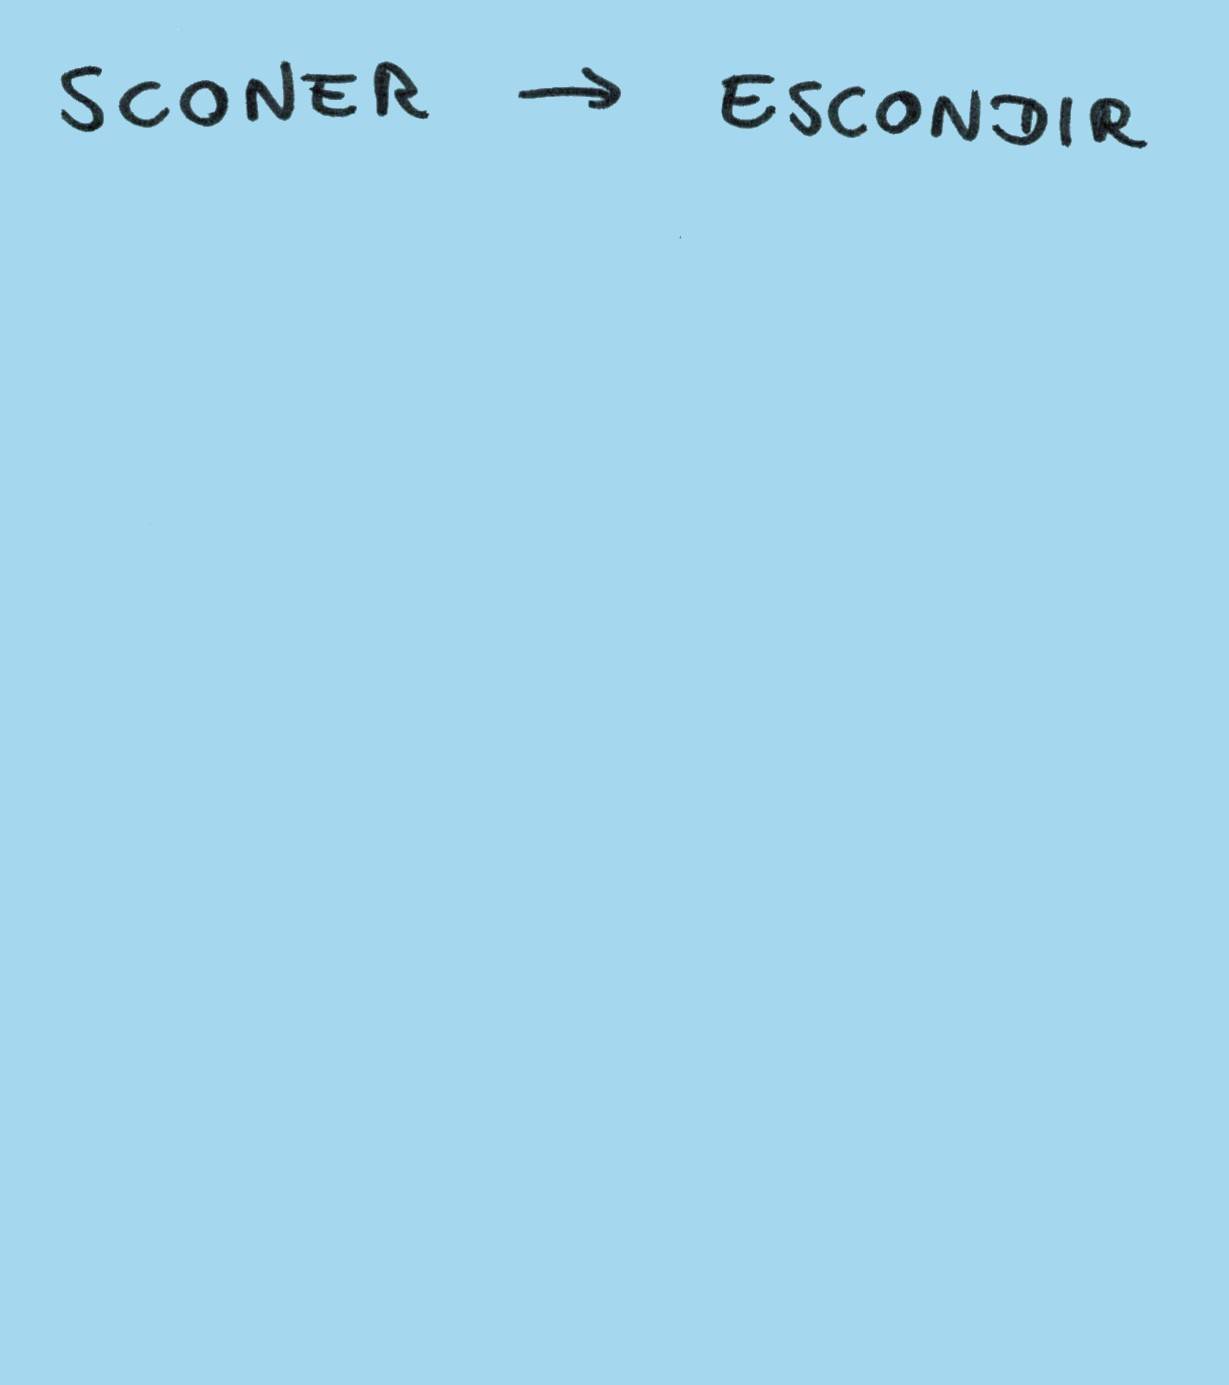 SCONER → ESCONDIR